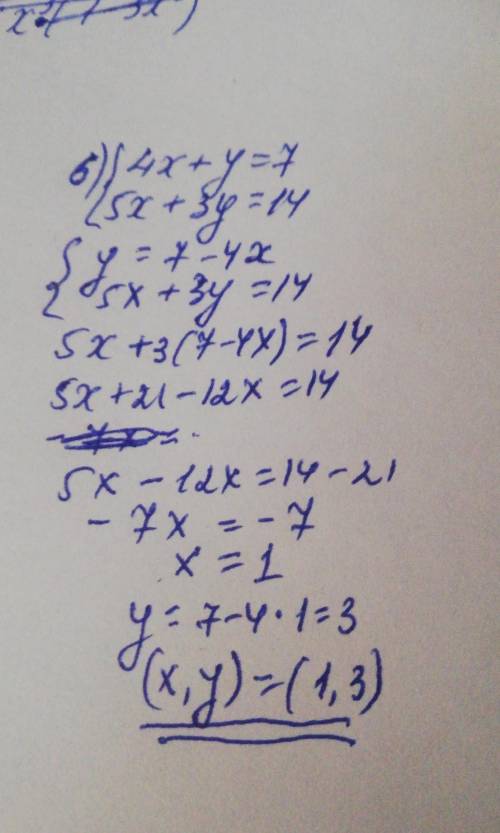 б) { 4x + y = 7
{ 5x + 3y = 14
{ y = 7 - 4x
{ 5x + 3y = 14
5x + 3(7 - 4x) = 14
5x + 21 - 12x = 14
5x - 12x = 14 - 21
- 7x = - 7
x = 1
y = 7 - 4 · 1 = 3
(x, y) = (1, 3)